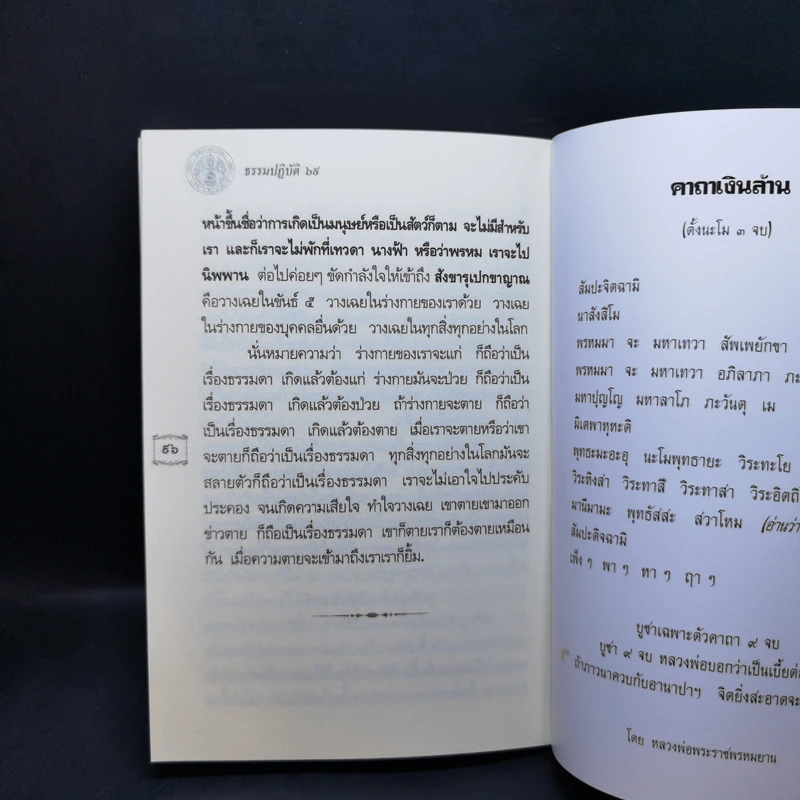 ธรรมปฏิบัติ ๖๙
หน้าขึ้นชื่อว่าการเกิดเป็นมนุษย์หรือเป็นสัตว์ก็ตาม จะไม่มีสำหรับ
เรา และก็เราจะไม่พักที่เทวดา นางฟ้า หรือว่าพรหม เราจะไป
นิพพาน ต่อไปค่อยๆ ขัดกำลังใจให้เข้าถึง สังขารุเปกขาญาณ
คือวางเฉยในขันธ์ ๕ วางเฉยในร่างกายของเราด้วย วางเฉย
ในร่างกายของบุคคลอื่นด้วย วางเฉยในทุกสิ่งทุกอย่างในโลก
นั่นหมายความว่า ร่างกายของเราจะแก่ ก็ถือว่าเป็น
เรื่องธรรมดา เกิดแล้วต้องแก่ ร่างกายมันจะป่วย ก็ถือว่าเป็น
เรื่องธรรมดา เกิดแล้วต้องป่วย ถ้าร่างกายจะตาย ก็ถือว่า
เป็นเรื่องธรรมดา เกิดแล้วต้องตาย เมื่อเราจะตายหรือว่าเขา
จะตายก็ถือว่าเป็นเรื่องธรรมดา ทุกสิ่งทุกอย่างในโลกมันจะ
สลายตัวก็ถือว่าเป็นเรื่องธรรมดา เราจะไม่เอาใจไปประคับ
ประคอง จนเกิดความเสียใจ ทำใจวางเฉย เขาตายเขามาออก
ข่าวตาย ก็ถือเป็นเรื่องธรรมดา เขาก็ตายเราก็ต้องตายเหมือน
กัน เมื่อความตายจะเข้ามาถึงเราเราก็ยิ้ม.
๕๖
คาถาเงินล้าน
(ตั้งนะโม ๓ จบ)
สัมปะจิตฉามิ
นาสังสิโม
พรหมมา จะ มหาเทวา สัพเพยักขา
พรหมมา จะ มหาเทวา อภิลาภา ภะ
มหาปุญโญ มหาลาโภ ภะวันตุ เม
มิเตพาหุหะติ
พุทธะมะอะอุ นะโมพุทธายะ วิระทะโย
วิระทิงสา วิระทาสี วิระทาสา วิระอิตถิ
มานีมามะ พุทธัสสะ สวาโหม (อ่านว่า
สัมปะติจฉามิ
เพ็ง ๆ พา ๆ หา ๆ ฤา ๆ
บูชาเฉพาะตัวคาถา ๙ จบ
บูชา ๙ จบ หลวงพ่อบอกว่าเป็นเบี้ยต่
ถ้าภาวนาควบกับอานาปาฯ จิตยิ่งสะอาดจะ
โดย หลวงพ่อพระราชพรหมยาน